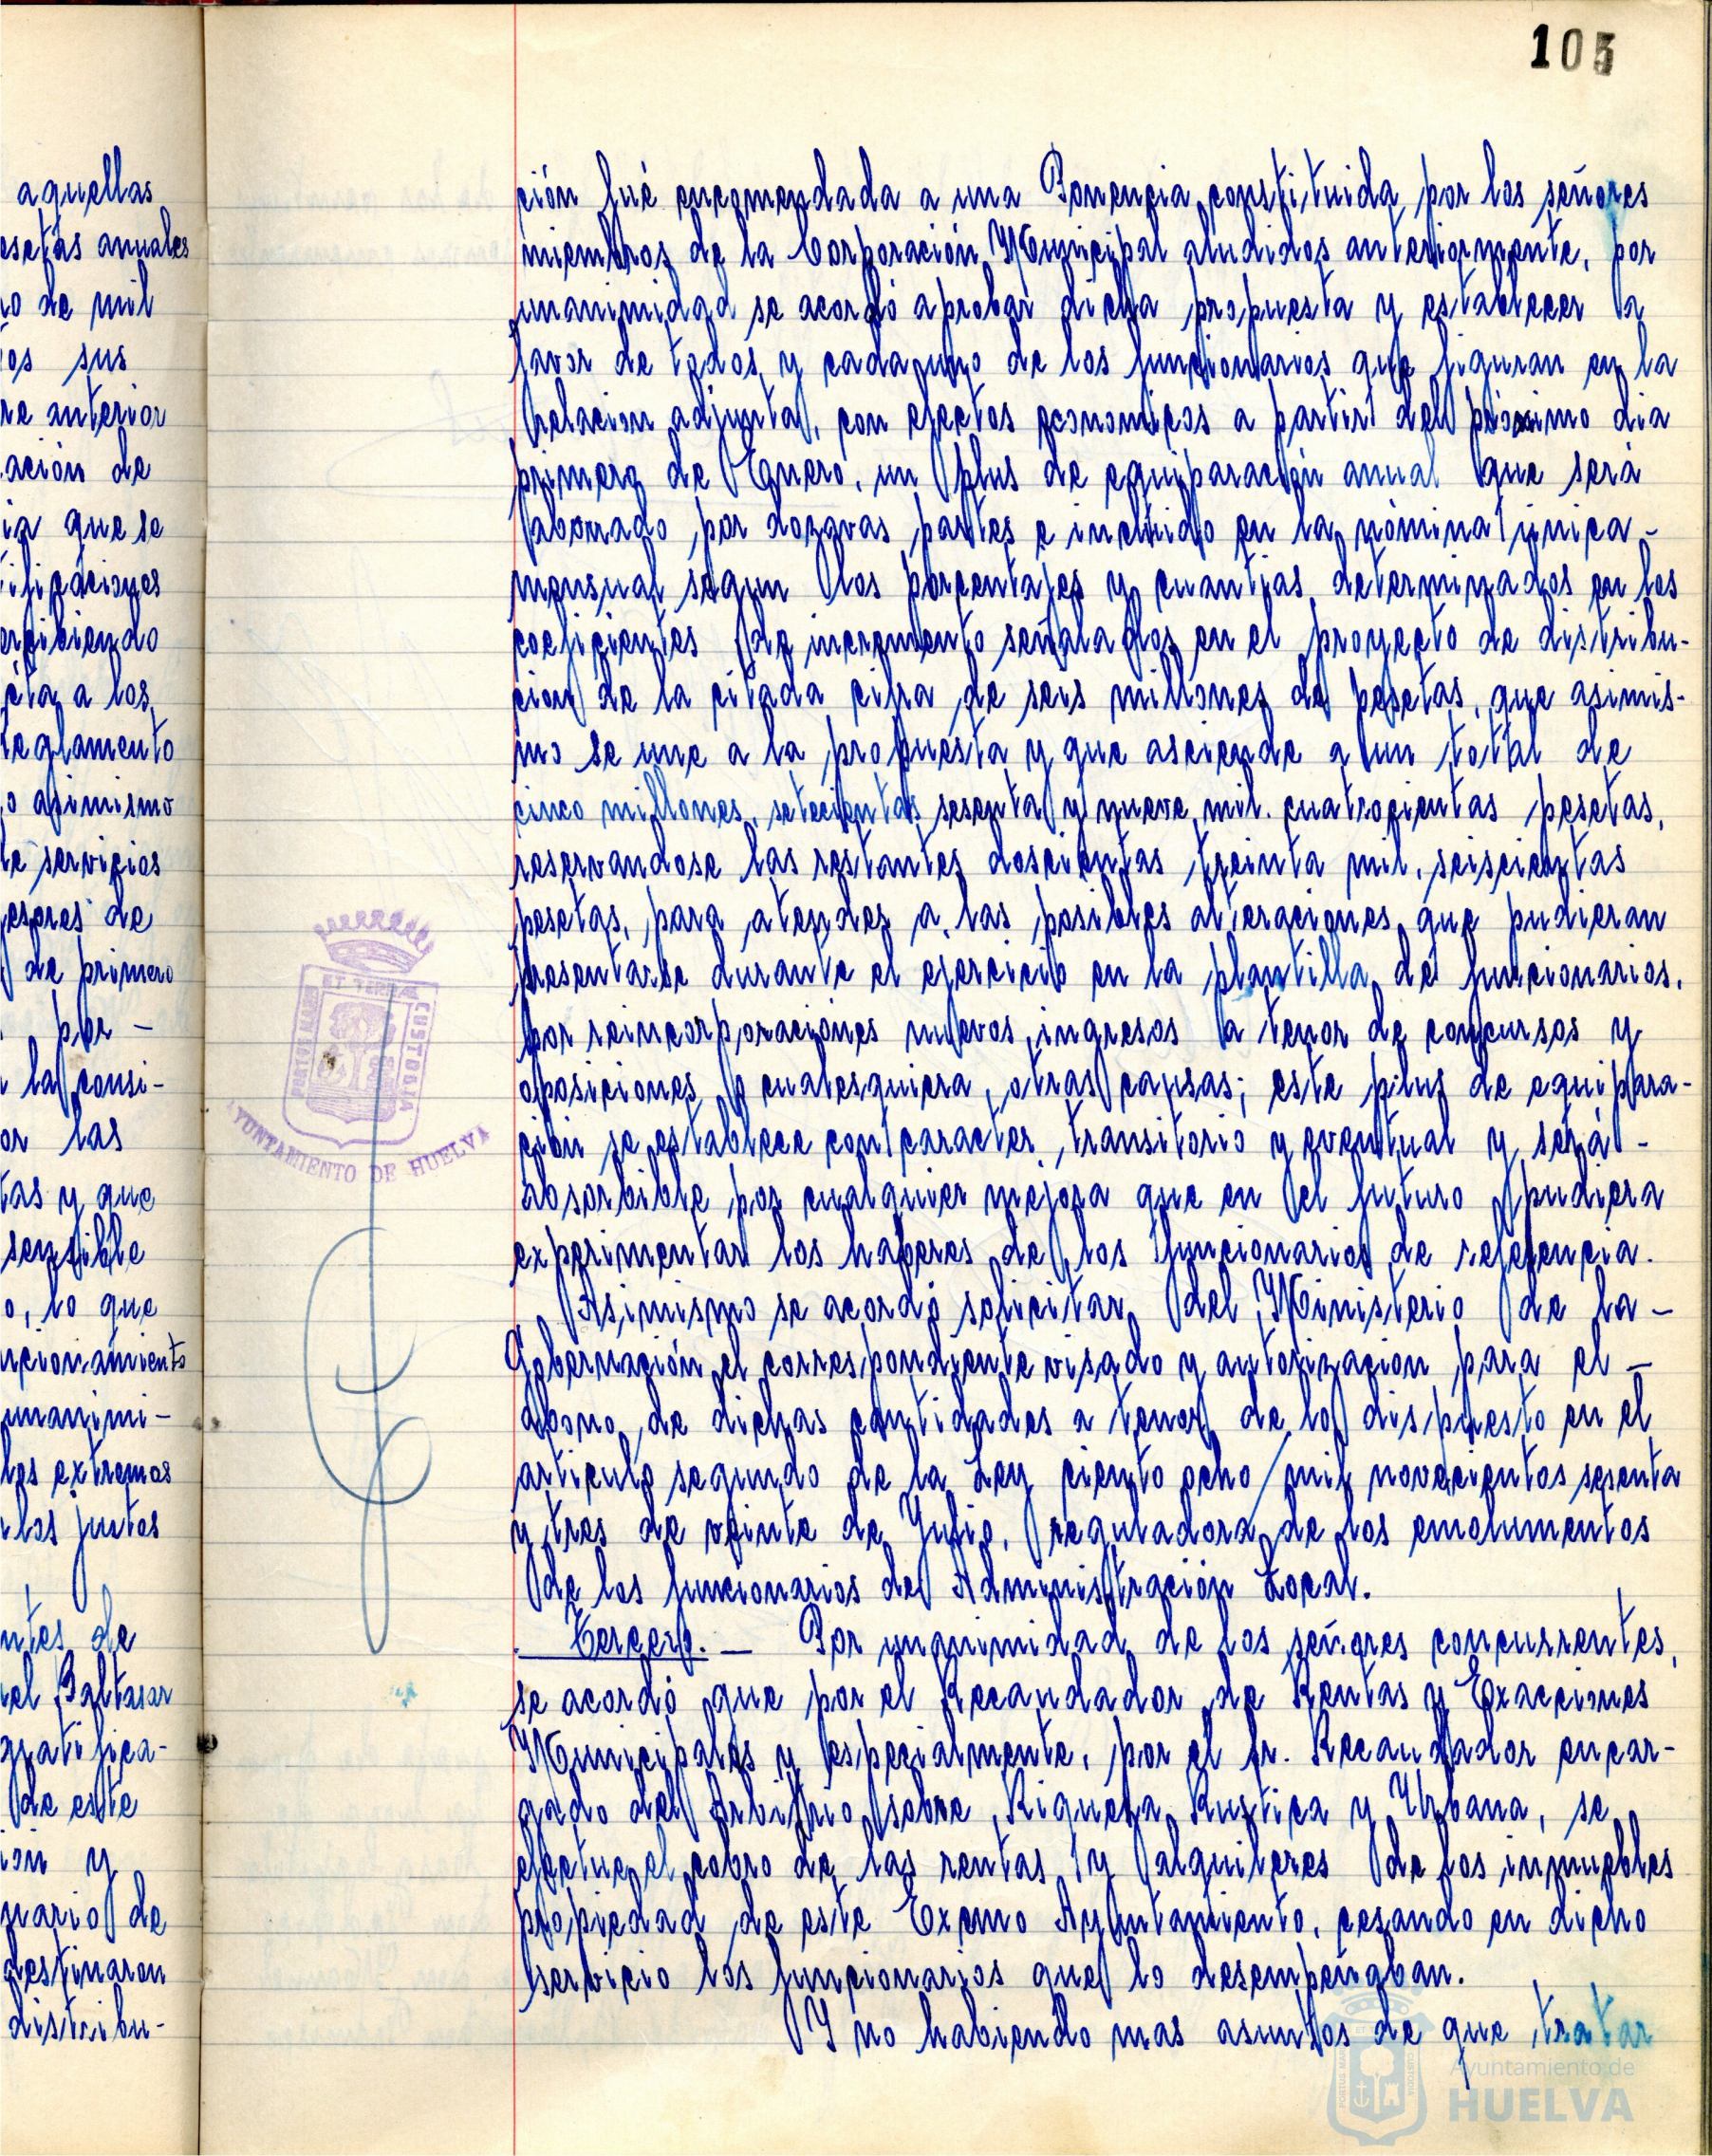 105
aquellas
esetas anuales
o de mil
os sus
re anterior
ación de
ia que se
ificaciones
ercibiendo
cta a los
reglamento
o asimismo
de servicios
esores de
de primero
por -
la consi-
or las
tas y que
sensible
o, lo que
ncionamiento
unanimi-
los extremos
los justos
ntes de
el Baltasar
gratifica-
de este
ion y
nario de
destinaron
distribu-
ción fué encomendada a una Ponencia constituida por los señores
miembros de la Corporación Municipal aludidos anteriormente, por
unanimidad se acordó aprobar dicha propuesta y establecer a
favor de todos y cada uno de los funcionarios que figuran en la
relacion adjunta, con efectos economicos a partir del próximo dia
primero de Enero, un plus de equiparación anual que será
abonado por dozavas partes e incluido en la nómina única -
mensual segun los porcentajes y cuantias determinados en los
coeficientes de incremento señalados en el proyecto de distribu-
cion de la citada cifra de seis millones de pesetas, que asimis-
mo se une a la propuesta y que asciende a un total de
cinco millones, setecientas sesenta y nueve mil. cuatrocientas pesetas,
reservandose las restantes doscientas treinta mil, seiscientas
pesetas, para atender a las posibles alteraciones que pudieran
presentarse durante el ejercicio en la plantilla de funcionarios,
por reincorporaciones nuevos ingresos a tenor de concursos y
oposiciones o cualesquiera otras causas; este plus de equipara-
ción se establece con caracter transitorio y eventual y será -
absorbible por cualquier mejora que en el futuro pudiera
experimentar los haberes de los funcionarios de referencia.
Asimismo se acordó solicitar del Ministerio de la -
Gobernación el correspondiente visado y autorizacion para el -
abono de dichas cantidades a tenor de lo dispuesto en el
articulo segundo de la Ley ciento ocho/mil novecientos sesenta
y tres de veinte de Julio, reguladora de los emolumentos
de los funcionarios de Administración Local.
Tercero. - Por unanimidad de los señores concurrentes,
se acordó que por el Recaudador de Rentas y Exacciones
Municipales y especialmente, por el Sr. Recaudador encar-
gado del Arbitrio sobre Riqueza Rustica y Urbana, se
efectue el cobro de las rentas y alquileres de los inmuebles
propiedad de este Excmo Ayuntamiento, cesando en dicho
servicio los funcionarios que lo desempeñaban.
Y no habiendo mas asuntos de que tratar
PORTUS MARIS ET TERRAE CUSTODIA
AYUNTAMIENTO DE HUELVA
Ayuntamiento de
HUELVA